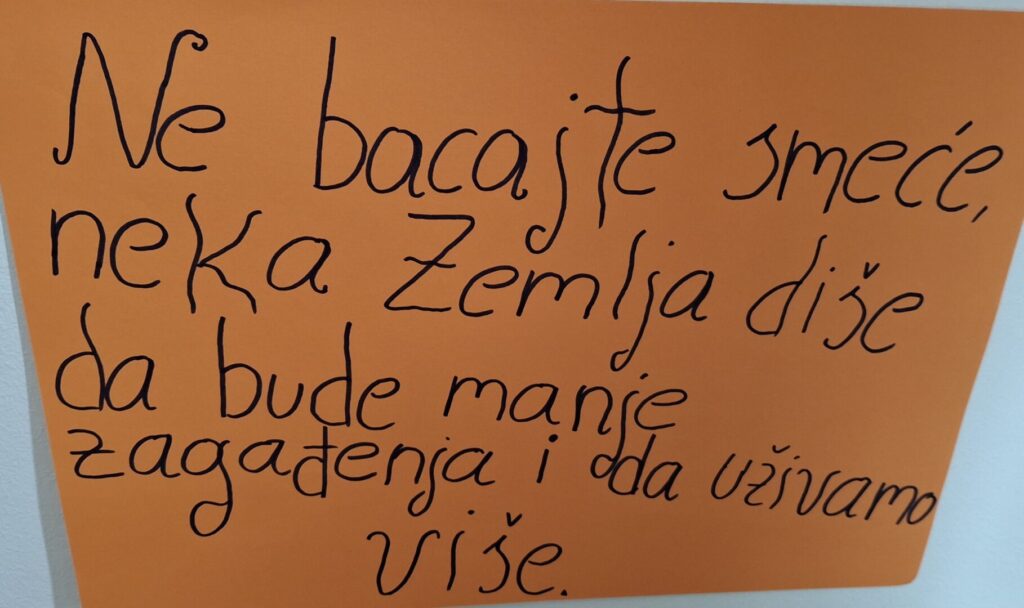 Ne bacajte smeće,
neka Zemlja diše
da bude manje
zagađenja i da uživamo
više.